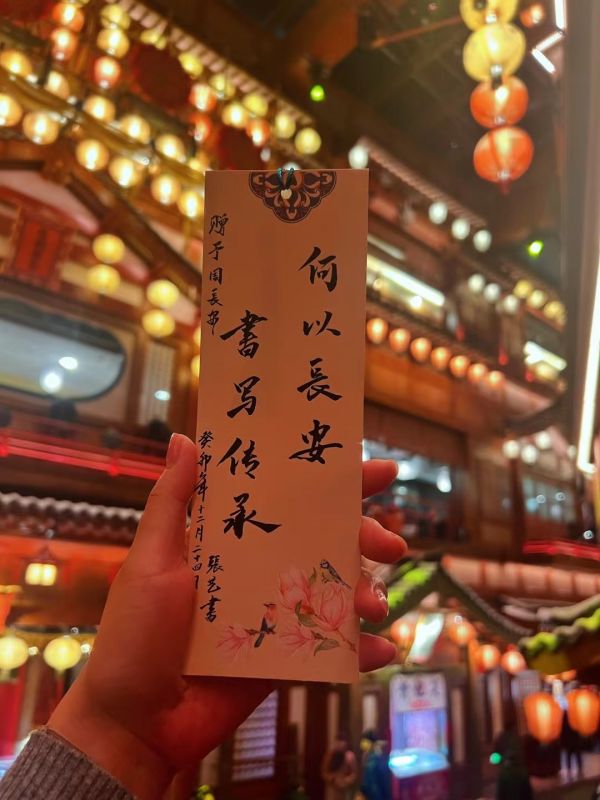 何以長安
書写传承
赠于周長安
癸卯年十二月二十四日
張艺書